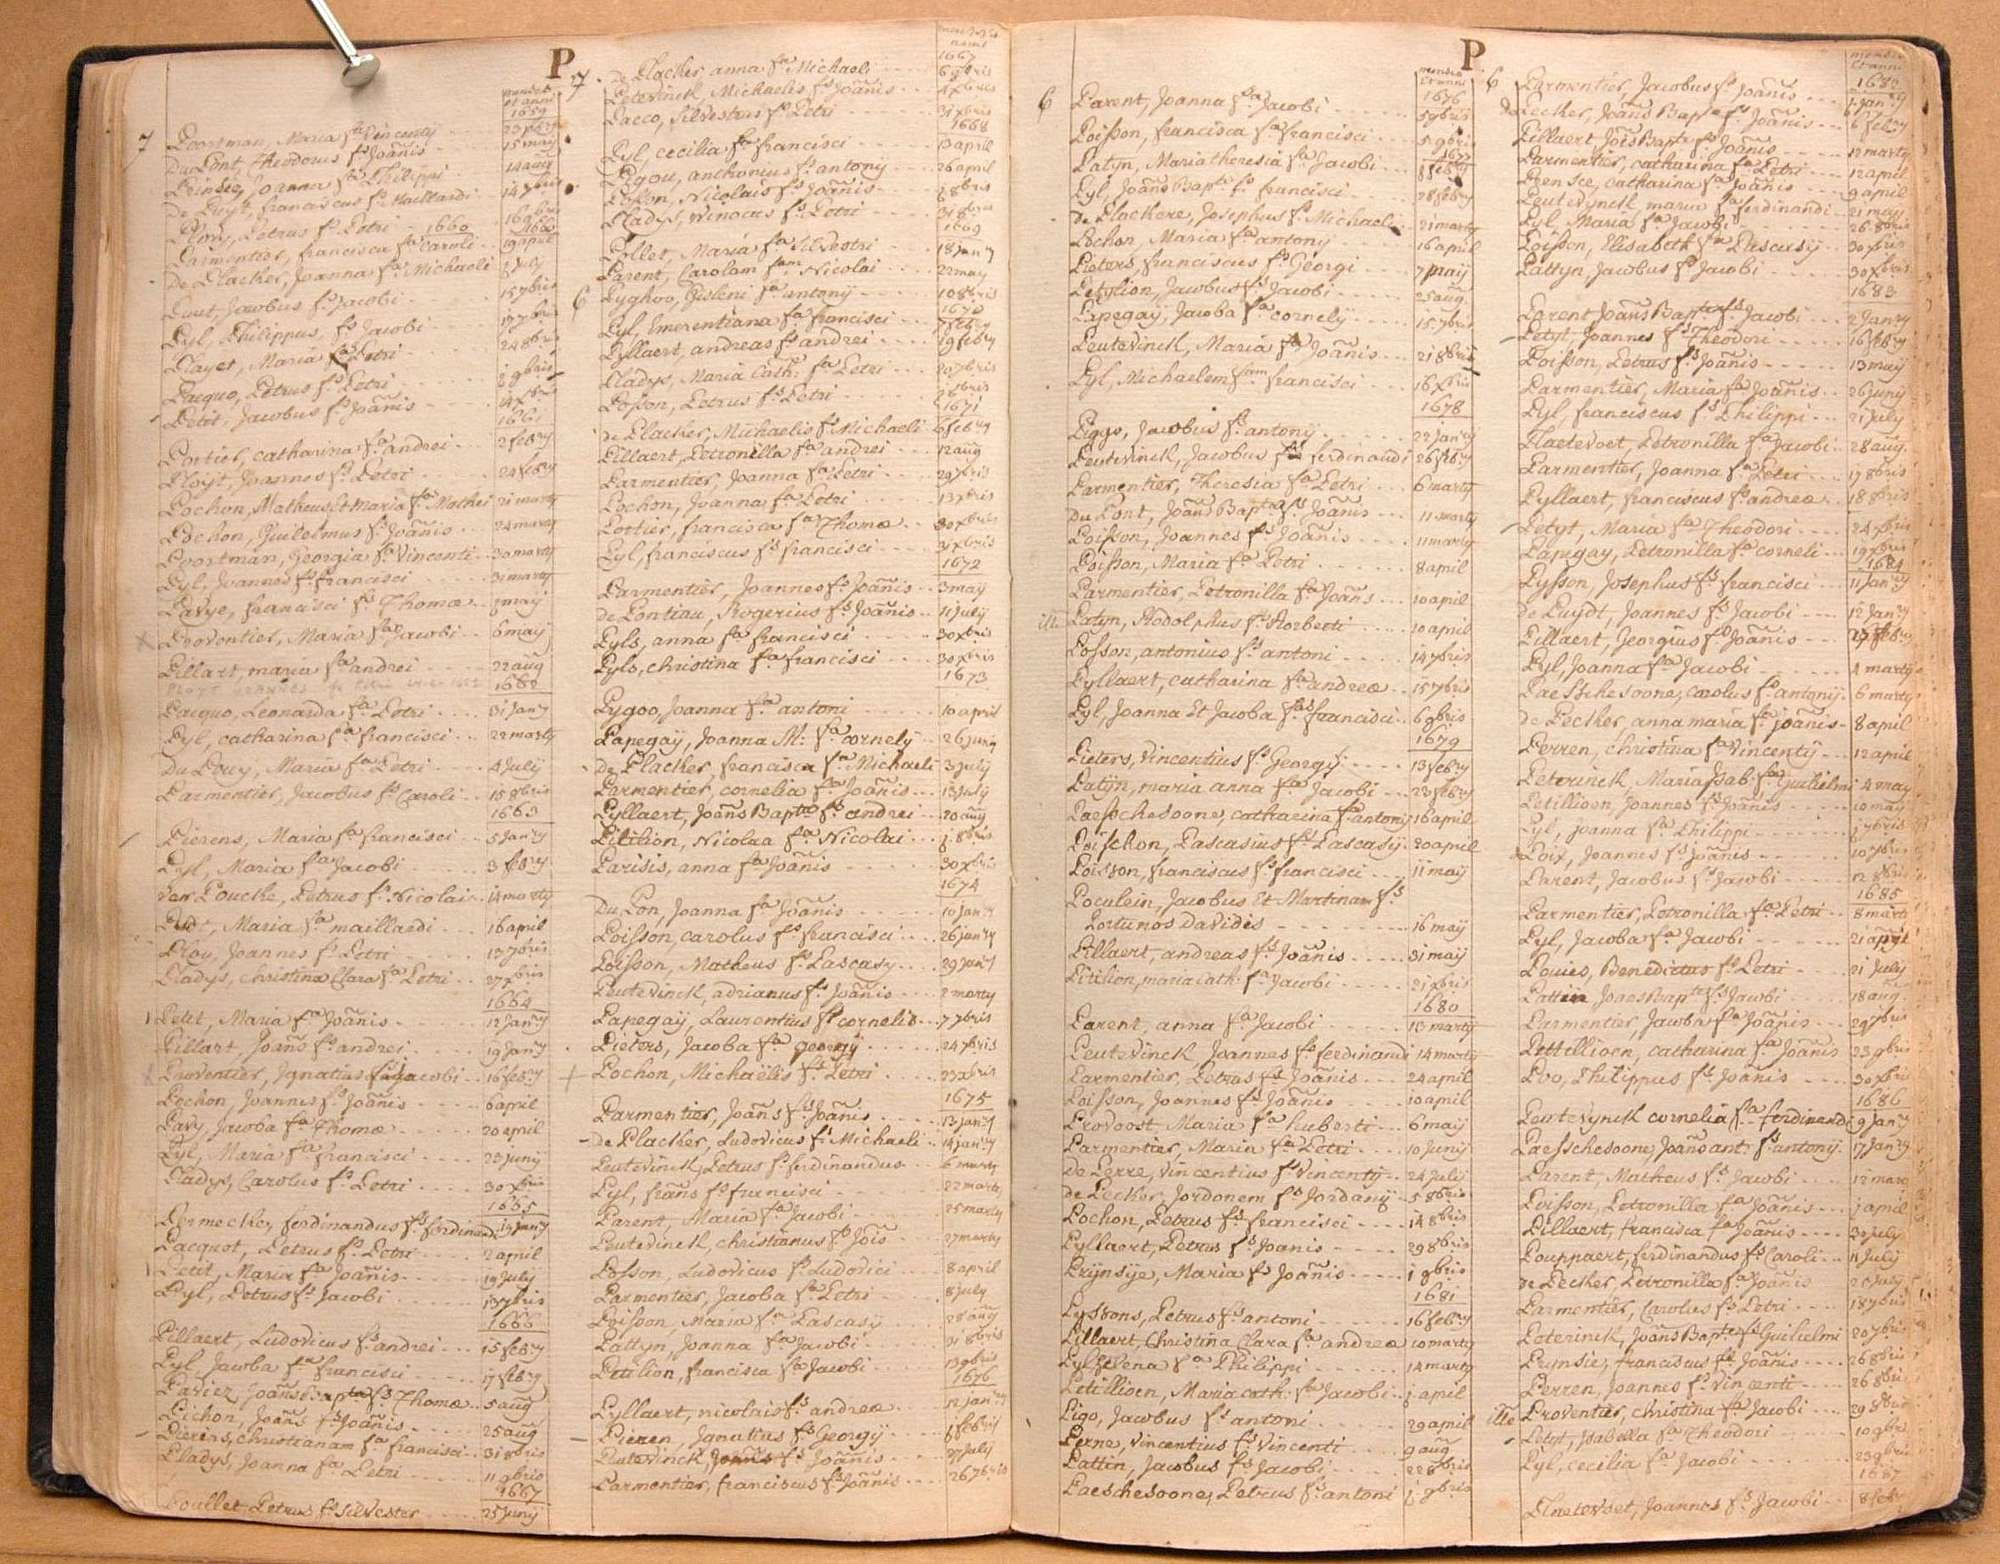 P
mensis et anni
1659
7
Poortman, Maria fa Vincentij 23 xbr
Du Pont, Theodorus fs Joãnis 15 may
Prinsie, Joanna fa Philippi 14 aug
de Puyt, franciscus fs Maillardi 14 xbris
Plovy, Petrus fs Petri - 1660
1660
Parmentier, francisca fa Caroli 19 april
de Placker, Joanna fa Michaeli july
Puut, Jacobus fs Jacobi 15 7bris
Pyl, Philippus fs Jacobi 17 7bris
Playet, Maria fa Petri 24 8bris
Pacquo, Petrus fs Petri 9bris
Petit, Jacobus fs Joãnis 14 xbris
1661
Portier, catharina fa andrei 2 febry
Ployt, Joannes fs Petri 24 febry
Pochon, Matheus, et Maria fa Mathei 21 marty
Pochon, Guilelmus fs Joãnis 24 marty
Poortman, Georgia fa Vincenti 30 marty
Pyl, Joannes fs francisci 31 marty
Pavye, francisci fs Thomæ j maij
x Provontier, Maria fa Jacobi 6 maij
Pillart, maria fa andrei 22 aug
1662
Pacquo, Leonarda fa Petri 31 Jany
Pyl, catharina fa francisci 22 marty
Du Pouy, Maria fa Petri 4 July
Parmentier, Jacobus fs Caroli 15 9bris
1663
Pierens, Maria fa francisci 5 Jany
Pyl, Maria fa Jacobi 3 febry
van Poucke, Petrus fs Nicolai 14 marty
Pudt, Maria fa maillardi 16 april
Plou, Joannes fs Petri 13 7bris
Pladys, Christina Clara fa Petri 27 xbris
1664
Petit, Maria fa Joãnis 12 Jany
Pillart, Joãns fs andrei 19 Jany
Proventier, Ignatius fs Jacobi 16 febry
Pochon, Joannes fs Joãnis 6 april
Pavy, Jacoba fa Thomæ 20 april
Pyl, Maria fa francisci 23 Junij
Pladys, Carolus fs Petri 30 xbris
1665
Permecke, ferdinandus fs ferdinandi Jany
Pacquot, Petrus fs Petri 2 april
Petit, Maria fa Joãnis 19 July
Pyl, Petrus fs Jacobi 13 7bris
1666
Pillaert, Ludovicus fs andrei 15 febry
Pyl, Jacoba fa francisci 17 febry
Paviez, Joãns Bapta fs Thomæ 5 aug
Pichon, Joãns fs Joãnis 25 aug
Pierens, christianam fa francisci 31 8bris
Pladys, Joanna fa Petri 11 9bris
1667
Poullet, Petrus fs silvester 25 Junij
7
1667
de Placker, anna fa Michaeli 6 9bris
Petevinck, Michaelis fs Joãnis 4 xbris
Pacco, Silvestrus fs Petri 31 xbris
1668
Pyl, cecilia fa francisci 13 april
Pygou, anthonius fs antonij 26 april
Posson, Nicolais fs Joãnis 8bris
Pladys, winocus fs Petri 31 8bris
1669
Pollet, Maria fa silvestri 18 Jany
Parent, Carolam fam Nicolai 22 may
6 Pyghoo, Gisleni fa antonij 10 8bris
1670
Pyl, Emerentiana fa francisci 7 febry
Pyllaert, andreas fs andrei 19 febry
Pladys, Maria Cath: fa Petri 20 7bris
Posson, Petrus fs Petri 26 xbris
1671
de Placker, Michaelis fs Michaeli 6 febry
Pillaert, Petronilla fa andrei 12 aug
Parmentier, Joanna fa Petri 29 xbris
Pochon, Joanna fa Petri 13 xbris
Portier, francisca fa Thomæ 30 xbris
Pyl, franciscus fs francisci 31 xbris
1672
Parmentier, Joannes fs Joãnis 3 maij
de Pontiau, Rogerius fs Joãnis 11 july
Pyls, anna fa francisci 30 xbris
Pyls, christina fa francisci 30 xbris
1673
Pygoo, Joanna fa antoni 10 april
Papegaij, Joanna M: fa cornely 26 juny
de Placker, francisca fa Michaeli 3 july
Parmentier, cornelia fa Joãnis 13 july
Pyllaert, Joãns Bapta fs andrei 20 aug
Pitilion, Nicolaa fa Nicolai j 8bris
Parisis, anna fa Joãnis 30 xbris
1674
Du Pon, Joanna fa Joãnis 10 jany
Poisson, carolus fs francisci 26 jany
Poisson, Matheus fs Pascasy 29 jany
Peutevinck, adrianus fs Joãnis 2 marty
Papegaij, Laurentius fs cornelis 7 7bris
Pieters, Jacoba fa georgij 24 7bris
+ Pochon, Michaëlis fs Petri 23 xbris
1675
Parmentier, Joãns fs Joãnis 13 jany
de Placker, Ludovicus fs Michaeli 14 jany
Peutevinck, Petrus fs ferdinandus 6 marty
Pyl, frãns fs francisci 22 marty
Parent, Maria fa Jacobi 25 marty
Peutevinck, christianus fs Jois 27 marty
Posson, Ludovicus fs Ludovici 8 april
Parmentier, Jacoba fa Petri 8 july
Poisson, Maria fa Pascasy 28 aug
Pattyn, Joanna fa Jacobi 31 8bris
Petilion, francisca fa Jacobi 13 9bris
1676
Pyllaert, nicolais fs andreæ 12 jany
Pieren, Ignatius fs Georgij febris
Peutevinck, Joãnis fs Joãnis 27 july
Parmentier, franciscus fs Joãnis 26 7bris
P
mensis et anni
1676
6 Parent, Joanna fa Jacobi 5 9bris
Poisson, francisca fa francisci 5 9bris
1677
Patyn, Maria theresia fa Jacobi febry
Pyl, Joãns Bapta fs francisci 28 febry
de Plackere, Josephus fs Michaeli 21 marty
Pochon, Maria fa antony 16 april
Pieters, franciscus fs Georgi 7 maij
Petylion, Jacobus fs Jacobi 25 aug
Papegaij, Jacoba fa cornely 15 7bris
Peutevinck, Maria fa Joãnis 21 8bris
Pyl, Michaelem fam francisci 16 xbris
1678
Pigo, Jacobus fs antony 22 jany
Peutevinck, Jacobus fs ferdinandi 26 febry
Parmentier, Theresia fa Petri 6 marty
Du Pont, Joãns Bapta fs Joãnis 11 marty
Poisson, Joannes fs Joãnis 11 marty
Poisson, Maria fa Petri 8 april
Parmentier, Petronilla fa Joãns 10 april
Patyn, Rodolphus fs Norberti 10 april
Posson, antonius fs antoni 14 7bris
Pyllaert, catharina fa andreæ 15 7bris
Pyl, Joanna Et Jacoba fas francisci 6 9bris
1679
Pieters, Vincentius fs Georgij 13 febry
Patijn, maria anna fa Jacobi 23 febry
Paesschesoone, catharina fa antonij 16 april
Poisschon, Pascasius fs Pascasij 20 april
Poisson, franciscus fs francisci 11 maij
Poculein, Jacobus Et Martinam fs
Portunos Davidis 16 maij
Pillaert, andreas fs Joãnis 31 maij
Pitilion, maria cath: fa Jacobi 21 xbris
1680
Parent, anna fa Jacobi 13 marty
Peutevinck Joannes fs ferdinandi 14 marty
Parmentier, Petrus fs Joãnis 24 april
Poisson, Joannes fs Joãnis 10 april
Provoost Maria fa huberti 6 maij
Parmentier, Maria fa Petri 10 junij
de Perre, vincentius fs Vincentij 24 july
de Pecker, Jordonem fs Jordanij 5 8bris
Pochon, Petrus fs francisci 14 8bris
Pyllaert, Petrus fs Joanis 29 8bris
Prijnsije, Maria fs Joãnis j 9bris
1681
Pyssons, Petrus fs antoni 16 febry
Pillaert, Christina Clara fa andreæ 10 marty
Pyl helena fa Philippi 14 marty
Petillioen, Maria cath: fa Jacobi j april
Pigo, Jacobus fs antoni 29 april
Perne, vincentius fs Vincenti 9 aug
Pattin, Jacobus fs Jacobi 22 8bris
Paeschesoone, Petrus fs antoni j 9bris
mensis et anni
6 Parmentier, Jacobus fs Joãnis
de Pecker, Joãns Bapta fs Joãnis 6 febry
Pillaert Joẽs Bapta fs Joãnis 12 marty
Parmentier, catharina fa Petri 12 april
Prensce, catharina fa Joãnis 9 april
Peutevynck maria fa ferdinandi 21 may
Pyl, Maria fa Jacobi 26 8bris
Poisson, Elisabeth fa Pascasij 30 xbris
Pattyn, Jacobus fs Jacobi 30 xbris
1683
Parent Joãns Bapta fs Jacobi 2 Jany
Petyt, Joannes fs Theodori 16 febry
Poisson, Petrus fs Joãnis 13 maij
Parmentier, Maria fa Joãnis 26 juny
Pyl, franciscus fs Philippi 21 july
Plaetevoet, Petronilla fa Jacobi 28 aug.
Parmentier, Joanna fa Petri 17 8bris
Pyllaert, franciscus fs andreæ 18 8bris
Petyt, Maria fa Theodori 24 xbris
Papegay, Petronilla fa corneli 19 xbris
1684
Pysson, Josephus fs francisci 11 Jany
de Puydt, Joannes fs Jacobi 12 Jany
Pillaert, Georgius fs Joãnis 27 febry
Pyl, Joanna fa Jacobi 4 marty
Paesschesoone, carolus fs antonij 6 marty
de Pecker, anna maria fa joãnis 8 april
Perren, Christina fa Vincentij 12 april
Petevinck Maria Isab. fa Guilielmi 4 may
Petillioen, Joannes fs Joãnis 10 may
Pyl, joanna fa Philippi 7bris
Poix, Joannes fs joãnis 10 7bris
Parent, Jacobus fs Jacobi 12 8bris
1685
Parmentier, Petronilla fa Petri 8 marti
Pyl, Jacoba fa Jacobi 21 april
Pouies, Benedictus fs Petri 21 July
Pattin Joaes Bapta fs Jacobi 18 aug
Parmentier, Jacoba fa Joãnis 29 7bris
Pettillioen, catharina fa Joãnis 23 9bris
Poo, Philippus fs Joãnis 30 xbris
1686
Peutevynck cornelia fa ferdinandi 9 jany
Paesschesoone, Joãns ant: fs antonij 17 Jany
Parent, Matheus fs Jacobi 12 mar
Poisson, Petronilla fa Joãnis j april
Pillaert, francisca fa Joãnis 30 july
Pouppaert, ferdinandus fs Caroli 11 july
de Pecker, Petronilla fa Joãnis 20 july
Parmentier, Carolus fs Petri 18 7bris
Peterinck, Joãns Bapta fs Guilielmi 20 7bris
Prijnsie, franciscus fs Joãnis 26 8bris
Perren, Joannes fs Vincenti 26 8bri
Proventier, christina fa Jacobi 29 8bri
Petyt, Isabella fa Theodori 10 9bri
Pyl, cecilia fa Jacobi 23 9bri
1687
Plaetevoet, Joannes fs Jacobi 8 feb